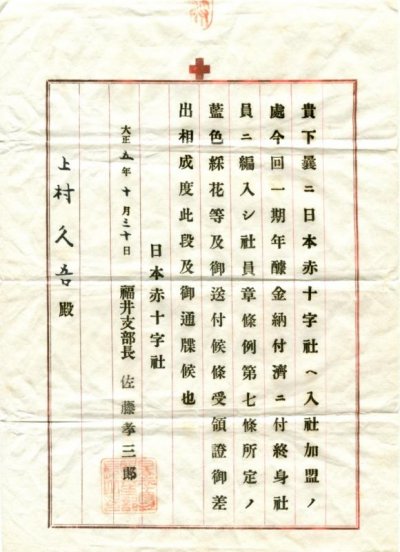 貴下曩ニ日本赤十字社ヘ入社加盟ノ
處今回一期年醵金納付濟ニ付終身社
員ニ編入シ社員章條例第七條所定ノ
藍色綵花等及御送付候條受領證御差
出相成度此段及御通牒候也
日本赤十字社
福井支部長 佐藤孝三郎
大正五年十月三十日
上村久吾殿